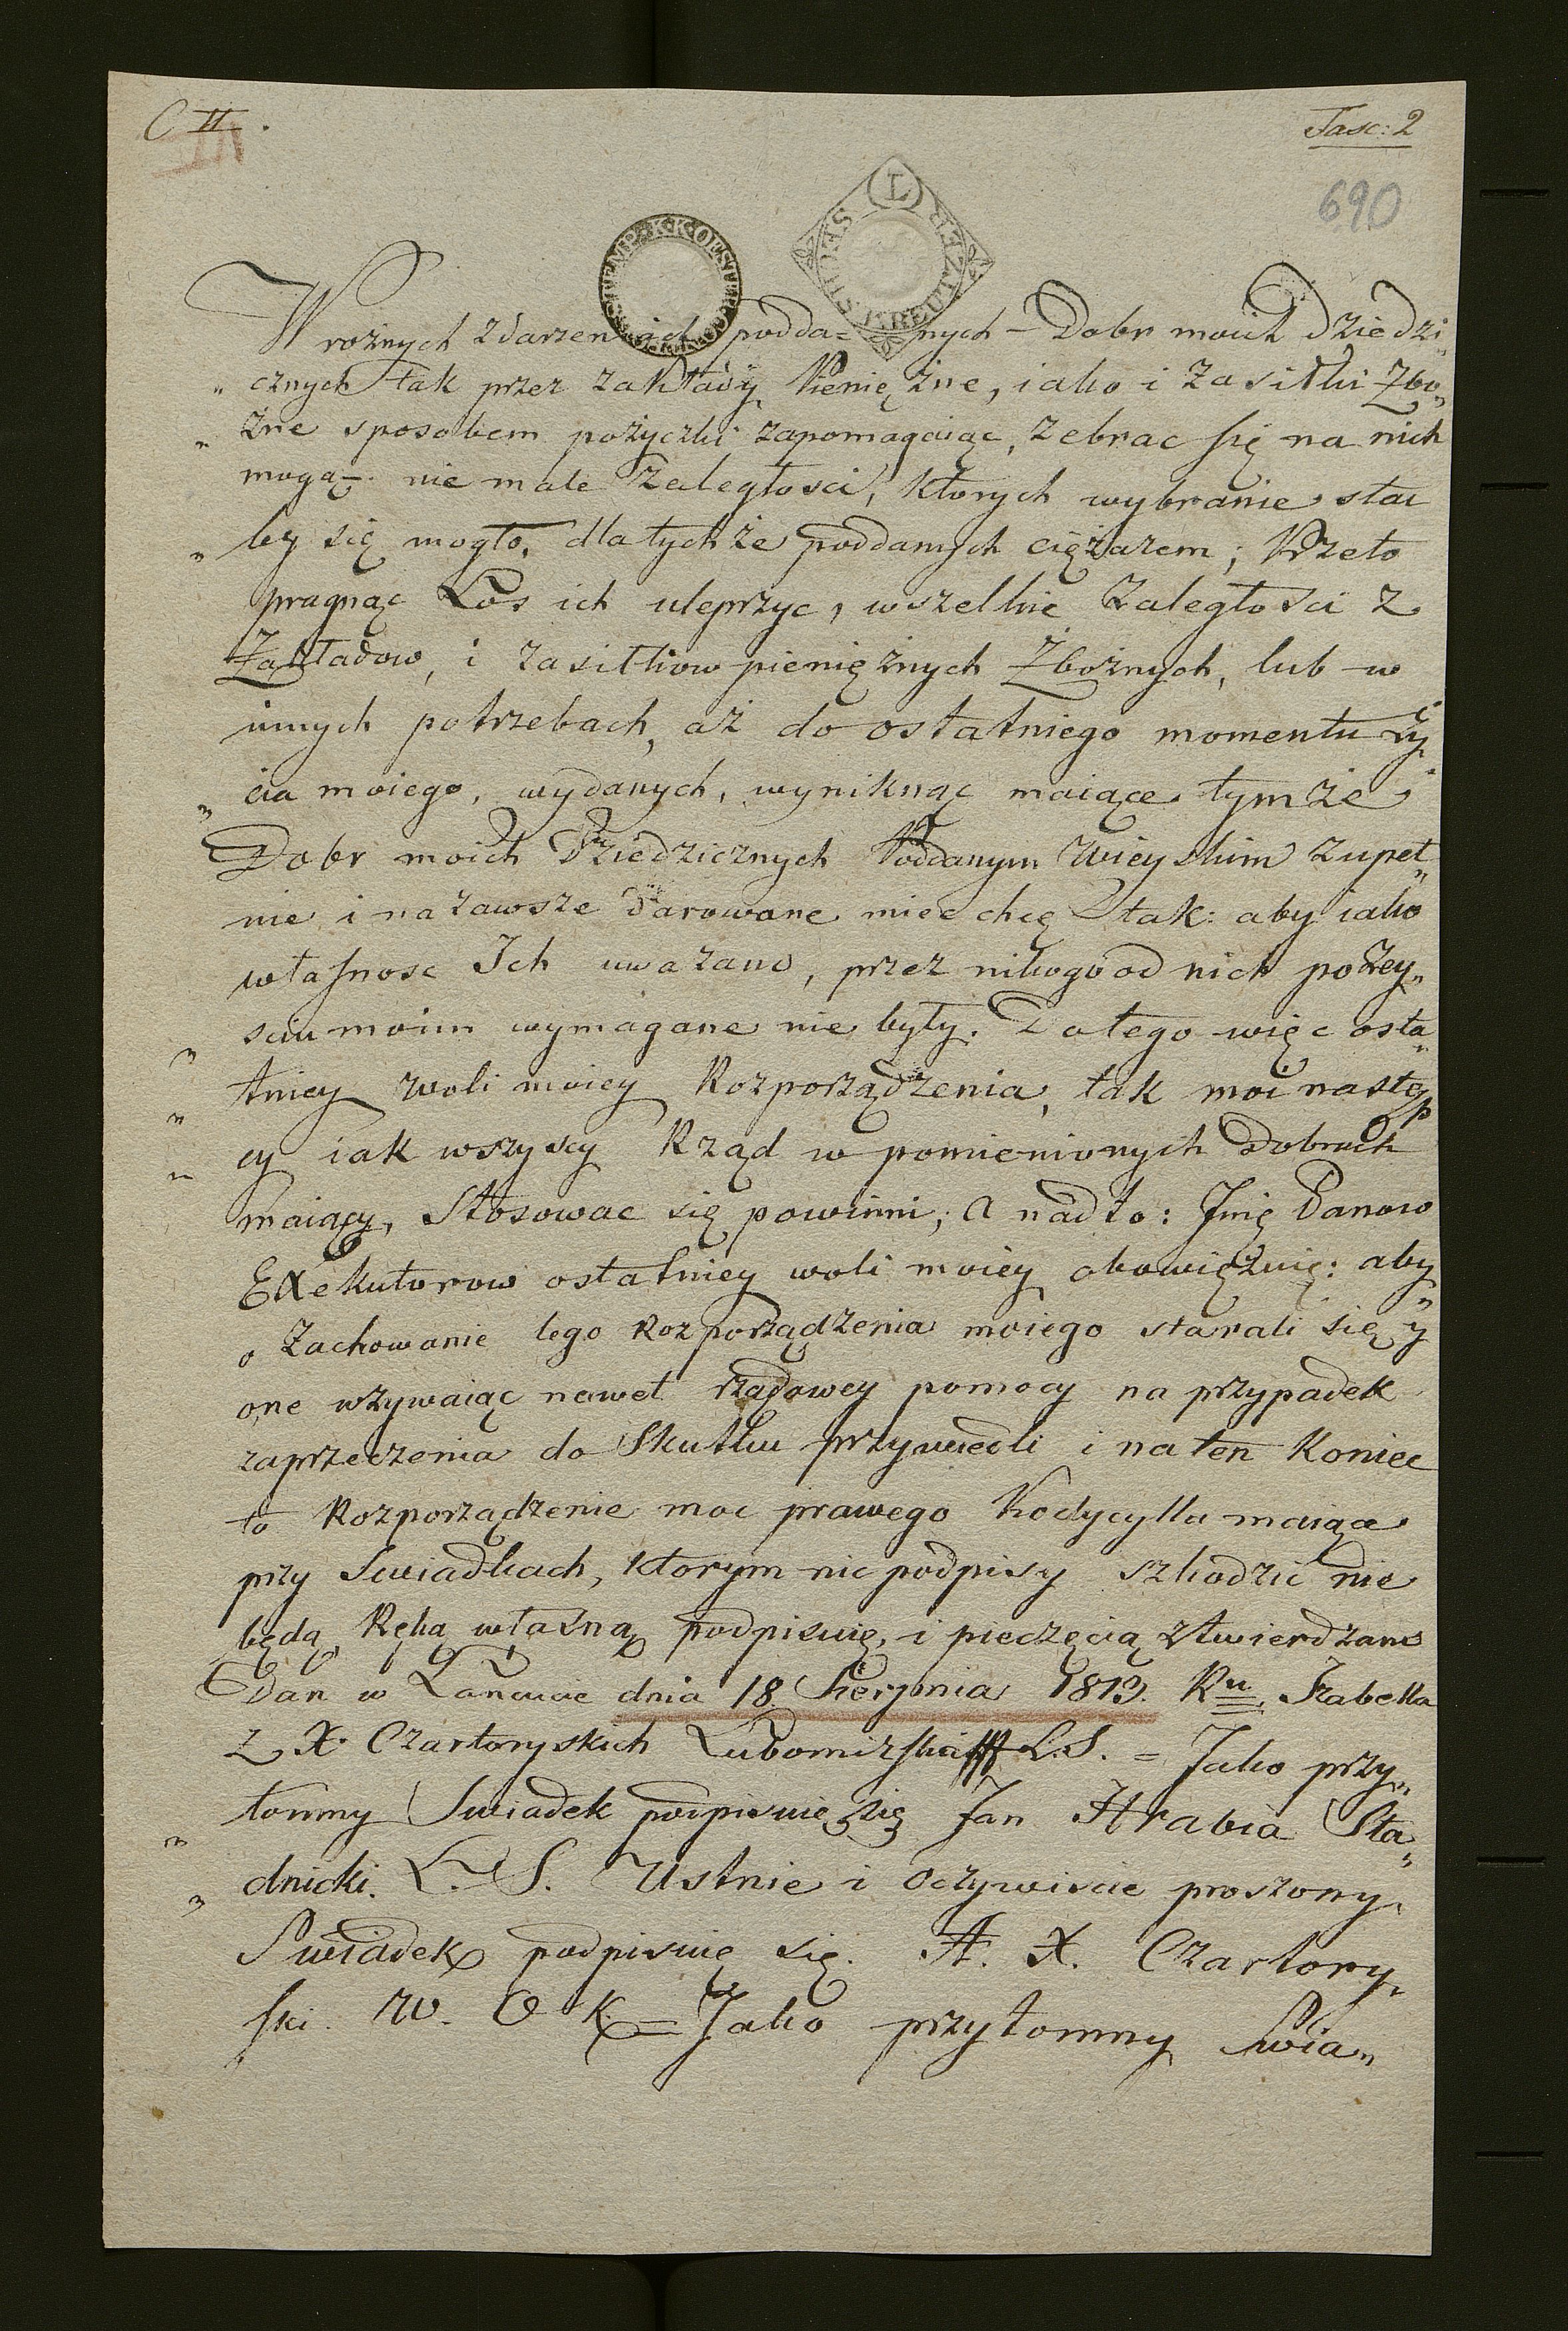 C II.
IV
Fasc: 2
690
STEMP. K. K. OEST
SECHS KREUTZER
W rożnych zdarzeniach podda= nych Dobr moich Dziedzi„
„cznych tak przez zakłady Pieniężne, iako i zasiłki Zbo„
„żne sposobem pożyczki zapomagaiąc, zebrac się na nich
mogą nie małe zaległosci, ktorych wybranie stac
„by się mogło, dla tychże poddanych ciężarem; Przeto
pragnąc Los ich ulepszyc, wszelkie zaległosci z
Zakładow, i zasiłkow pieniężnych Zbożnych, lub w
innych potrzebach, aż do ostatniego momentu ży„
„cia moiego, wydanych, wyniknąc maiące tymże
Dobr moich Dziedzicznych Poddanym Wieyskim zupeł„
nie i na zawsze darowane miec chcę tak: aby iako
własnosc Ich uważano, przez nikogo od nich po życy„
„sciu moim wymagane nie były. Do tego więc osta„
„tniey woli moiey Rozporządzenia, tak moi następ
„cy iak wszyscy Rząd w pomienionych Dobrach
maiący, Stosowac się powinni; a nadto: Jmę Panow
Exekutorow ostatniey woli moiey obowiązuię: aby„
o zachowanie tego Rozporządzenia moiego starali się y
one wzywaiąc nawet rządowey pomocy na przypadek
zaprzeczenia do Skutku przywiedli i na ten Koniec
to Rozporządzenie moc prawego Kodycyllu maiące
przy Swiadkach, ktorym nic podpisy szkodzić nie
będą, Ręką własną podpisuię, i pieczęcią ztwierdzam
Dan w Łancucie dnia 18. Sierpnia 1813. Ru Izabella
z X. Czartoryskich Lubomirska L.S. = Jako przy„
„tomny Swiadek podpisuię się Jan Hrabia Sta„
„dnicki. L. S. Ustnie i oczywiscie proszony
Swiadek podpisuię się. A. X. Czartory„
ski. W. O K. = Jako przytomny Swia„